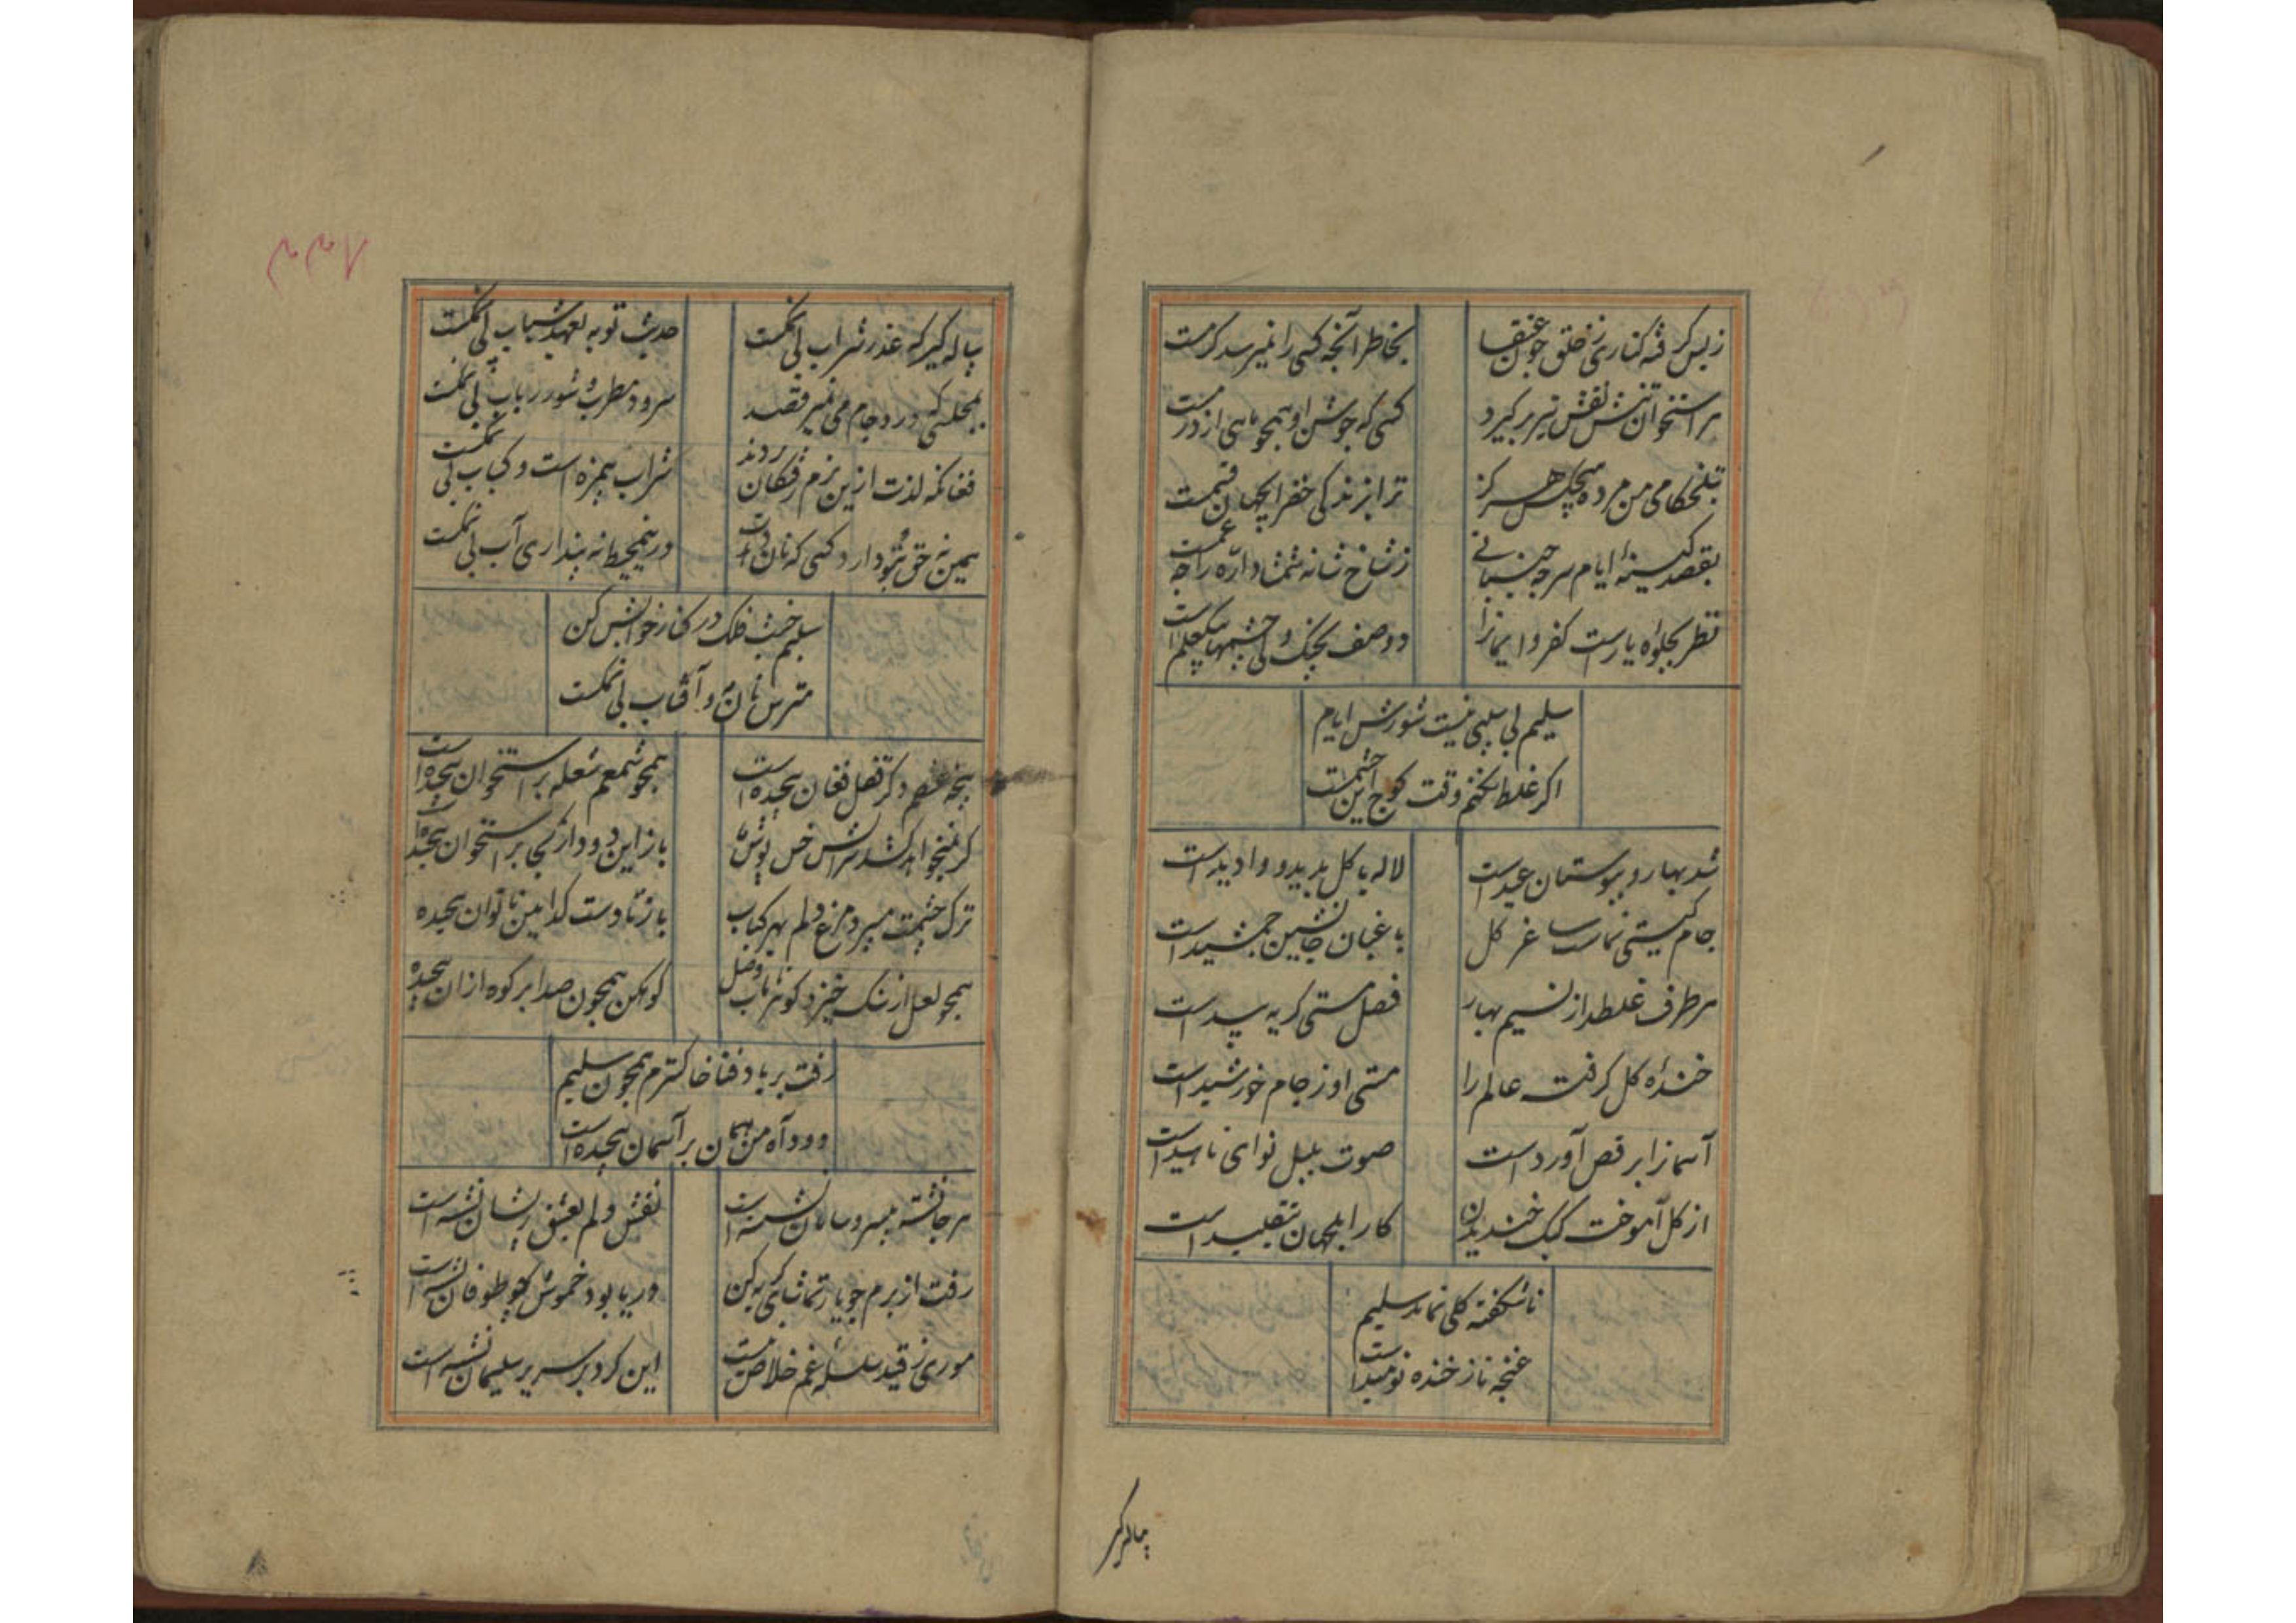 زبس گرفته کناری ز خلق چون عنقا
بخاطر آنچه کسی را نمیرسد کرمست
بر استخوان تنش نقش تیر برگیرد
کسی که جوشن او همچو ماهی از درمست
بتلخکامی من مرده هیچکس هرگز
ترا بزندگی خضر ایجهان قسمت
بقصد کینهٔ ایام سر چه جنبانی
ز شاخ شانه شمشاد اره را چه غمست
نظر بجلوه یارست کفر و ایمانرا
دو صف بجنگ ولی چشمها بیک علم است
سلیم بی سببی نیست شورش ایام
اکر غلط نکنم وقت کوچ این حشمست
شد بهار و ببوستان عید است
لاله با کل بدید و وادید است
جام کیتی نماست ساغر کل
باغبان جانشین جمشید است
هر طرف غلطد از نسیم بهار
فصل مستی کریه بید است
خندهٔ کل کرفت عالم را
مستی او ز جام خورشید است
آسمانرا برقص آورد است
صوت بلبل نوای ناهید است
از کل آموخت کبک خندیدن
کار ابلهان تقلید است
ناشکفته کلی نماند سلیم
غنچه ناز خنده نومید است
پیاله کیر
پیاله کیر که عذر شراب بی نمکست
حدیث توبه بعهد شباب بی نمکست
بمجلسی که درو جام می نمیرقصد
سرود مطرب و شور رباب بی نمکست
فغان که مزه لذت ازین بزم رفتکان بردند
شراب بیمزه است و کباب بی نمکست
همین نه حق تو دارد کسی که نان داد است
درین محیط نه پنداری آب بی نمکست
سلیم خشت فلک در کنار خوانش کن
مترس نان مه و آفتاب بی نمکست
پنجه غم دکر قفل فغان پیچیده است
همچو شمعم شعله بر استخوان پیچیده است
کر نمیخواهد کشد آتش خس پوش
باز این دود از کجا بر استخوان پیچیده است
ترک چشمت میبرد مرغ دلم بهر کباب
باز تا دست کدامین ناتوان پیچیده
همچو لعل از سنک خیزد کوهر نایاب وصل
کوهکن همچون صدا بر کوه ازان پیچیده
رفت بر باد فنا خاکسترم همچون سلیم
دود آه من همان بر آسمان پیچیده است
هر جا نشسته بیسر و سامان نشسته است
نقش دلم بعشق پریشان نشسته است
رفت از برم چو یار تماشای کریه کن
دریا بود خموش چو طوفان نشسته است
موری ز قید سلسلهٔ غم خلاص نیست
این کرد بر سریر سلیمان نشسته است